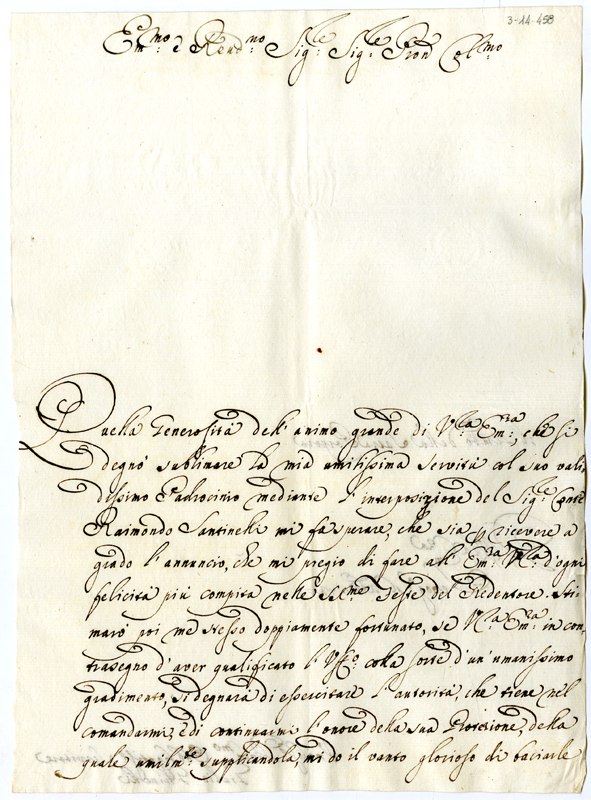 3-14-458
Em:mo e Revd:mo Sig:re Sig:re Pron Col:mo
Quella Generosità dell'animo grande di V:ra Em:za, che si
degnò sublimare la mia umilissima servitù col suo vali
dissimo Padrocinio mediante l'interposizione del Sig:re Conte
Raimondo Santinelli mi fa sperare, che sia p ricevere a
grado l'annuncio, che mi pregio di fare all' Em:za V:ra d'ogni
felicità più compita nelle SS:me Feste del Redentore. Sti
marò poi me stesso doppiamente fortunato, se V:ra Em:za in con,
trasegno d'aver qualificato l' colla sorte d'un'umanissimo
gradimento, si degnarà di essercitare l'autorità, che tiene nel
comandarmi, e di continuarmi l'onore della sua Protezione, della
quale umilm:te supplicandola, mi do il vanto glorioso di baciarle